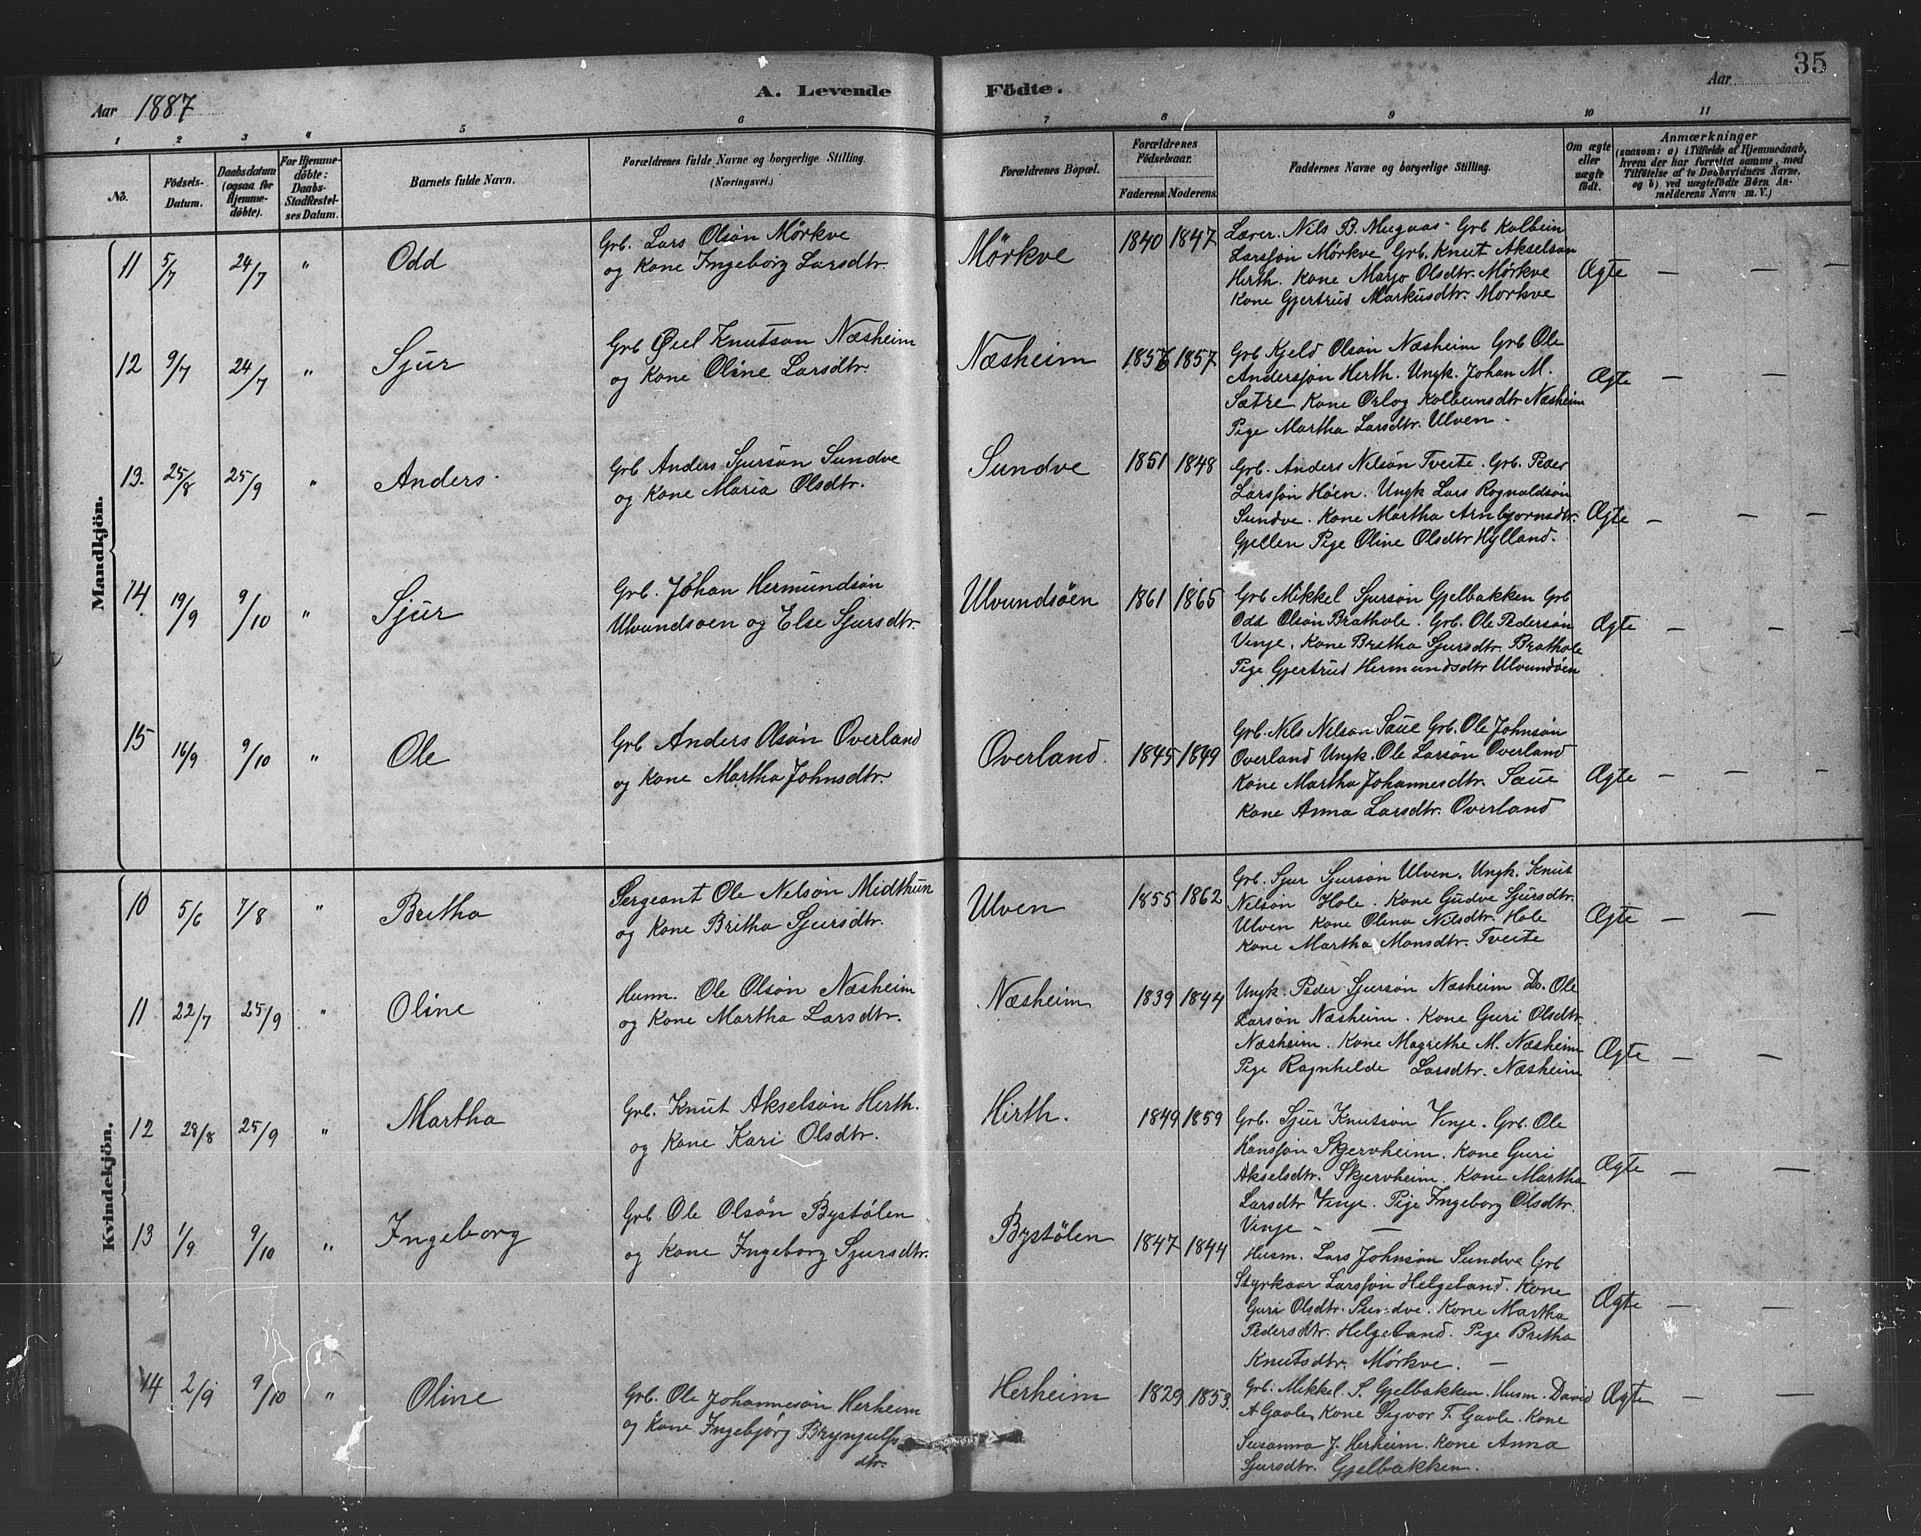 Aar 1887
A. Levende Födte.
Aar
35
1 2 3 4 5 6 7 8 9 10 11
No.
Födsels-Datum.
Daabsdatum (ogsaa for Hjemmedöbte).
For Hjemmedöbte: Daabs-Stadfæstelses Datum.
Barnets fulde Navn.
Forældrenes fulde Navne og borgerlige Stilling.
(Næringsvei.)
Forældrenes Bopæl.
Forældrenes Födselsaar.
Faderens Moderens
Faddernes Navne og borgerlige Stilling.
Om ægte eller uægte födt.
Anmærkninger
(saasom: a) i Tilfælde af Hjemmedaab, hvem der har forrettet samme, med Tilföielse af to Daabsvidners Navne, og b) ved uægtefödte Börn Anmelderens Navn m. V.)
Mandkjön.
11 5/7 24/7 " Odd
Grb. Lars Olsön Mörkve
og Kone Ingeborg Larsdtr.
Mörkve 1840 1847
Lærer Nils B. Mugaas Grb Kolbein
Larssön Mörkve Grb. Knut Akselsön
Herth. Kone Marjo Olsdtr. Mörkve
Kone Gjertrud Markusdtr. Mörkve
Ægte — — —
12 9/7 24/7 " Sjur
Grb Knutson Næsheim
og Kone Oline Larsdtr.
Næsheim 1857
Grb Kjeld Olsön Næsheim Grb Ole
Anderssön Herth. Ungk. Johan M.
Sætre Kone Orlog Kolbeinsdtr Næsheim
Pige Martha Larsdtr. Ulven.
Ægte — —
13. 25/8 25/9 " Anders.
Grb Anders Sjursön Sundve
og Kone Maria Olsdtr.
Sundve 1851 1848
Grb. Anders Nilsön Tveite. Grb. Peder
Larssön Höen. Ungk Lars Rognaldsön
Sundve. Kone Martha Arnbjornsdtr.
Gjellen Pige Oline Olsdtr Hylland.
Ægte — — —
14 19/9 9/10 " Sjur
Grb. Johan Hermundsön
Ulvundsöen og Else Sjursdtr.
Ulvundsöen 1861 1865
Grb Mikkel Sjursön Gjelbakken Grb
Odd Olsön Brathole. Grb. Ole Pedersön
Vinje. Kone Bretha Sjursdtr Brathole
Pige Gjertrud Hermundsdtr Ulvundöen
Ægte — — —
15 16/9 9/10 " Ole
Grb Anders Olsön Overland
og Kone Martha Johnsdtr.
Overland. 1845 1849
Grb. Nils Nilson Saue Grb. Ole Johnsön
Overland Ungk. Ole Larsön Overland
Kone Martha Johannesdtr. Saue
Kone Anna Larsdtr. Overland
Ægte — — —
Kvindekjön.
10 5/6 7/8 " Britha
Sergeant Ole Nelsön Midthun
og Kone Britha Sjursdtr.
Ulven 1855 1862
Grb. Sjur Sjursön Ulven. Ungk. Knut
Nelsön Hole. Kone Gudve Sjursdtr.
Ulven Kone Olina Nilsdtr. Hole
Kone Martha Monsdtr. Tveite
Ægte — —
11 22/7 25/9 " Oline
Husm. Ole Olsön Næsheim
og Kone Martha Larsdtr.
Næsheim 1839 1844
Ungk. Peder Sjursön Næsheim Do. Ole
Larsön Næsheim. Kone Guri Olsdtr.
Næsheim. Kone Magrethe M. Næsheim
Pige Ragnhelde Larsdtr. Næsheim
Ægte — —
12 28/8 25/9 " Martha
Grb. Knut Akselsön Herth.
og Kone Kari Olsdtr.
Hirth. 1849 1859
Grb. Sjur Knutsön Vinje. Grb. Ole
Hanssön Skjervheim. Kone Guri
Akselsdtr. Skjervheim. Kone Martha
Larsdtr Vinje. Pige Ingeborg Olsdtr.
Vinje — —
Ægte — —
13 1/9 9/10 " Ingeborg
Grb Ole Olsön Bystölen
og Kone Ingeborg Sjursdtr.
Bystölen 1847 1844
Husm. Lars Johnsön Sundve Grb
Styrkaar Larssön Helgeland. Kone
Guri Olsdtr. Sundve. Kone Martha
Pedersdtr. Helgeland. Pige Britha
Knutsdtr. Mörkve. —
Ægte — —
14 2/9 9/10 " Oline
Grb. Ole Johannesön Herheim
og Kone Ingebjörg Bryngulfs
dtr.
Herheim 1829 1853.
Grb. Mikkel S. Gjelbakken. Husm. David
A Gavle. Kone Sigvor T. Gavle. Kone
Susanna J. Herheim. Kone Anna
Sjursdtr. Gjelbakken.
Ægte — —